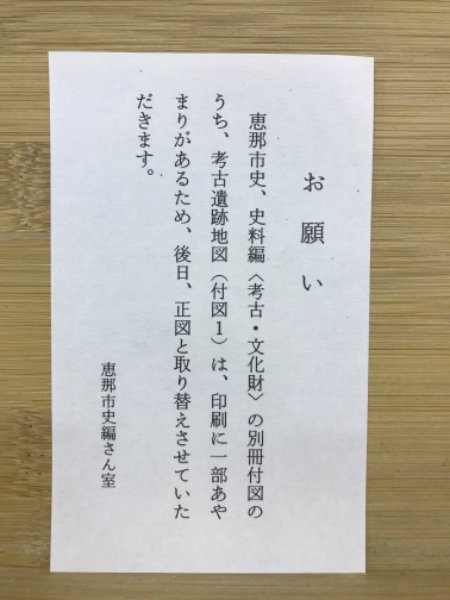 お願い
恵那市史、史料編〈考古・文化財〉の別冊付図の
うち、考古遺跡地図（付図１）は、印刷に一部あや
まりがあるため、後日、正図と取り替えさせていた
だきます。
恵那市史編さん室